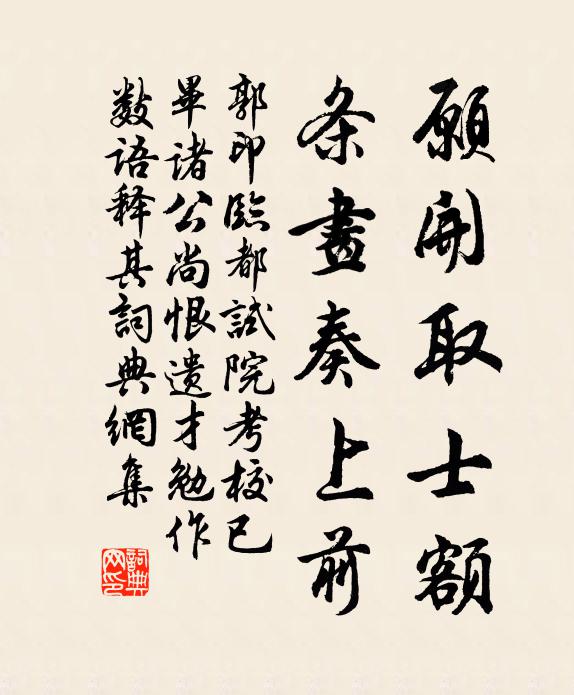 願開取士額
条畫奏上前
郭印臨都試院考校已
畢諸公尚恨遺才勉作
数語释其詞典網集
詞典網印